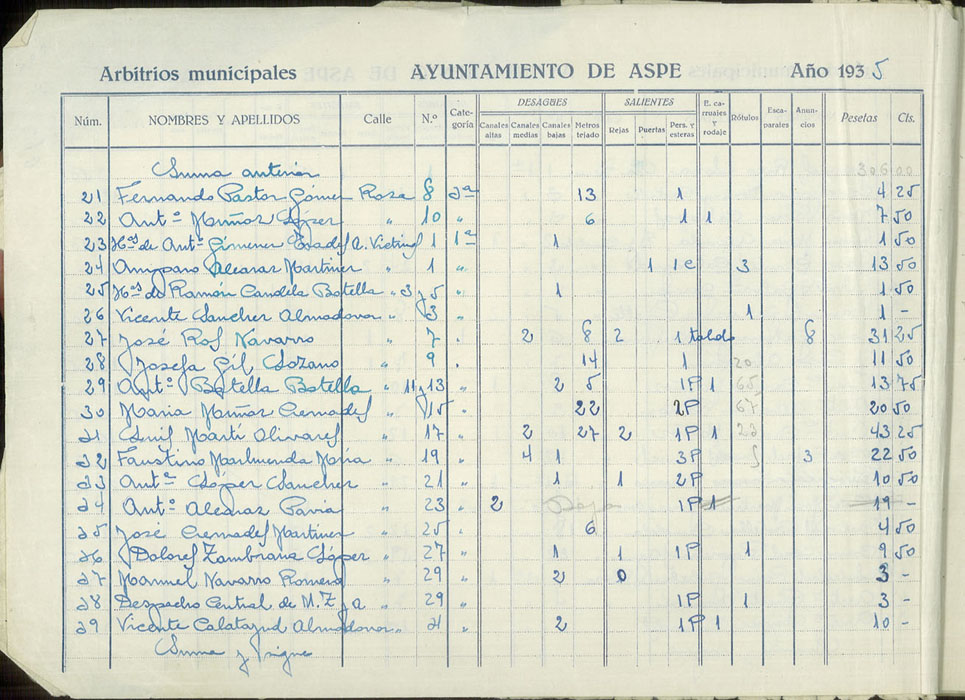 Arbitrios municipales AYUNTAMIENTO DE ASPE Año 1935
DESAGÜES SALIENTES
Núm. NOMBRES Y APELLIDOS Calle N.º Categoría Canales altas Canales medias Canales bajas Metros tejado Rejas Puertas Pers. y esteras E. carruajes y rodaje Rótulos Escaparates Anuncios Pesetas Cts.
Suma anterior 306 00
21 Fernando Pastor Gómez Rosa 8 2ª 13 1 4 25
22 Antº Muñoz López " 10 " 6 1 1 7 50
23 Hºs de Antº Gimenez A. Victing 1 1ª 1 1 50
24 Amparo Alcaraz Martinez " 1 " 1 1c 3 13 50
25 Hºs de Ramón Candela Botella " 3 y 5 " 1 1 50
26 Vicente Sanchez Almodovar " 3 " 1 1 -
27 José Ros Navarro " 7 . 2 8 2 1 toldo 8 31 25
28 Josefa Gil Lozano " 9 . 14 1 20 11 50
29 Antº Botella Botella " 11 y 13 " 2 5 1P 1 65 13 75
30 Maria Muñoz Cremades " 15 . 22 2P 67 20 50
31 Luis Martí Olivares " 17 " 2 27 2 1P 1 23 43 25
32 Faustino María " 19 " 4 1 3P 3 22 50
33 Antº López Sanchez " 21 " 1 1 2P 10 50
34 Antº Alcaraz Pavia " 23 " 2 1P 1 19 -
35 José Cremades Martinez " 25 . 6 4 50
36 Dolores Zambrana López " 27 " 1 1 1P 1 9 50
37 Manuel Navarro Romero " 29 " 2 0 3 -
38 Despacho Central de M.Z y A " 29 " 1P 1 3 -
39 Vicente Calatayud Almodovar " 31 " 2 1P 1 10 -
Suma y sigue